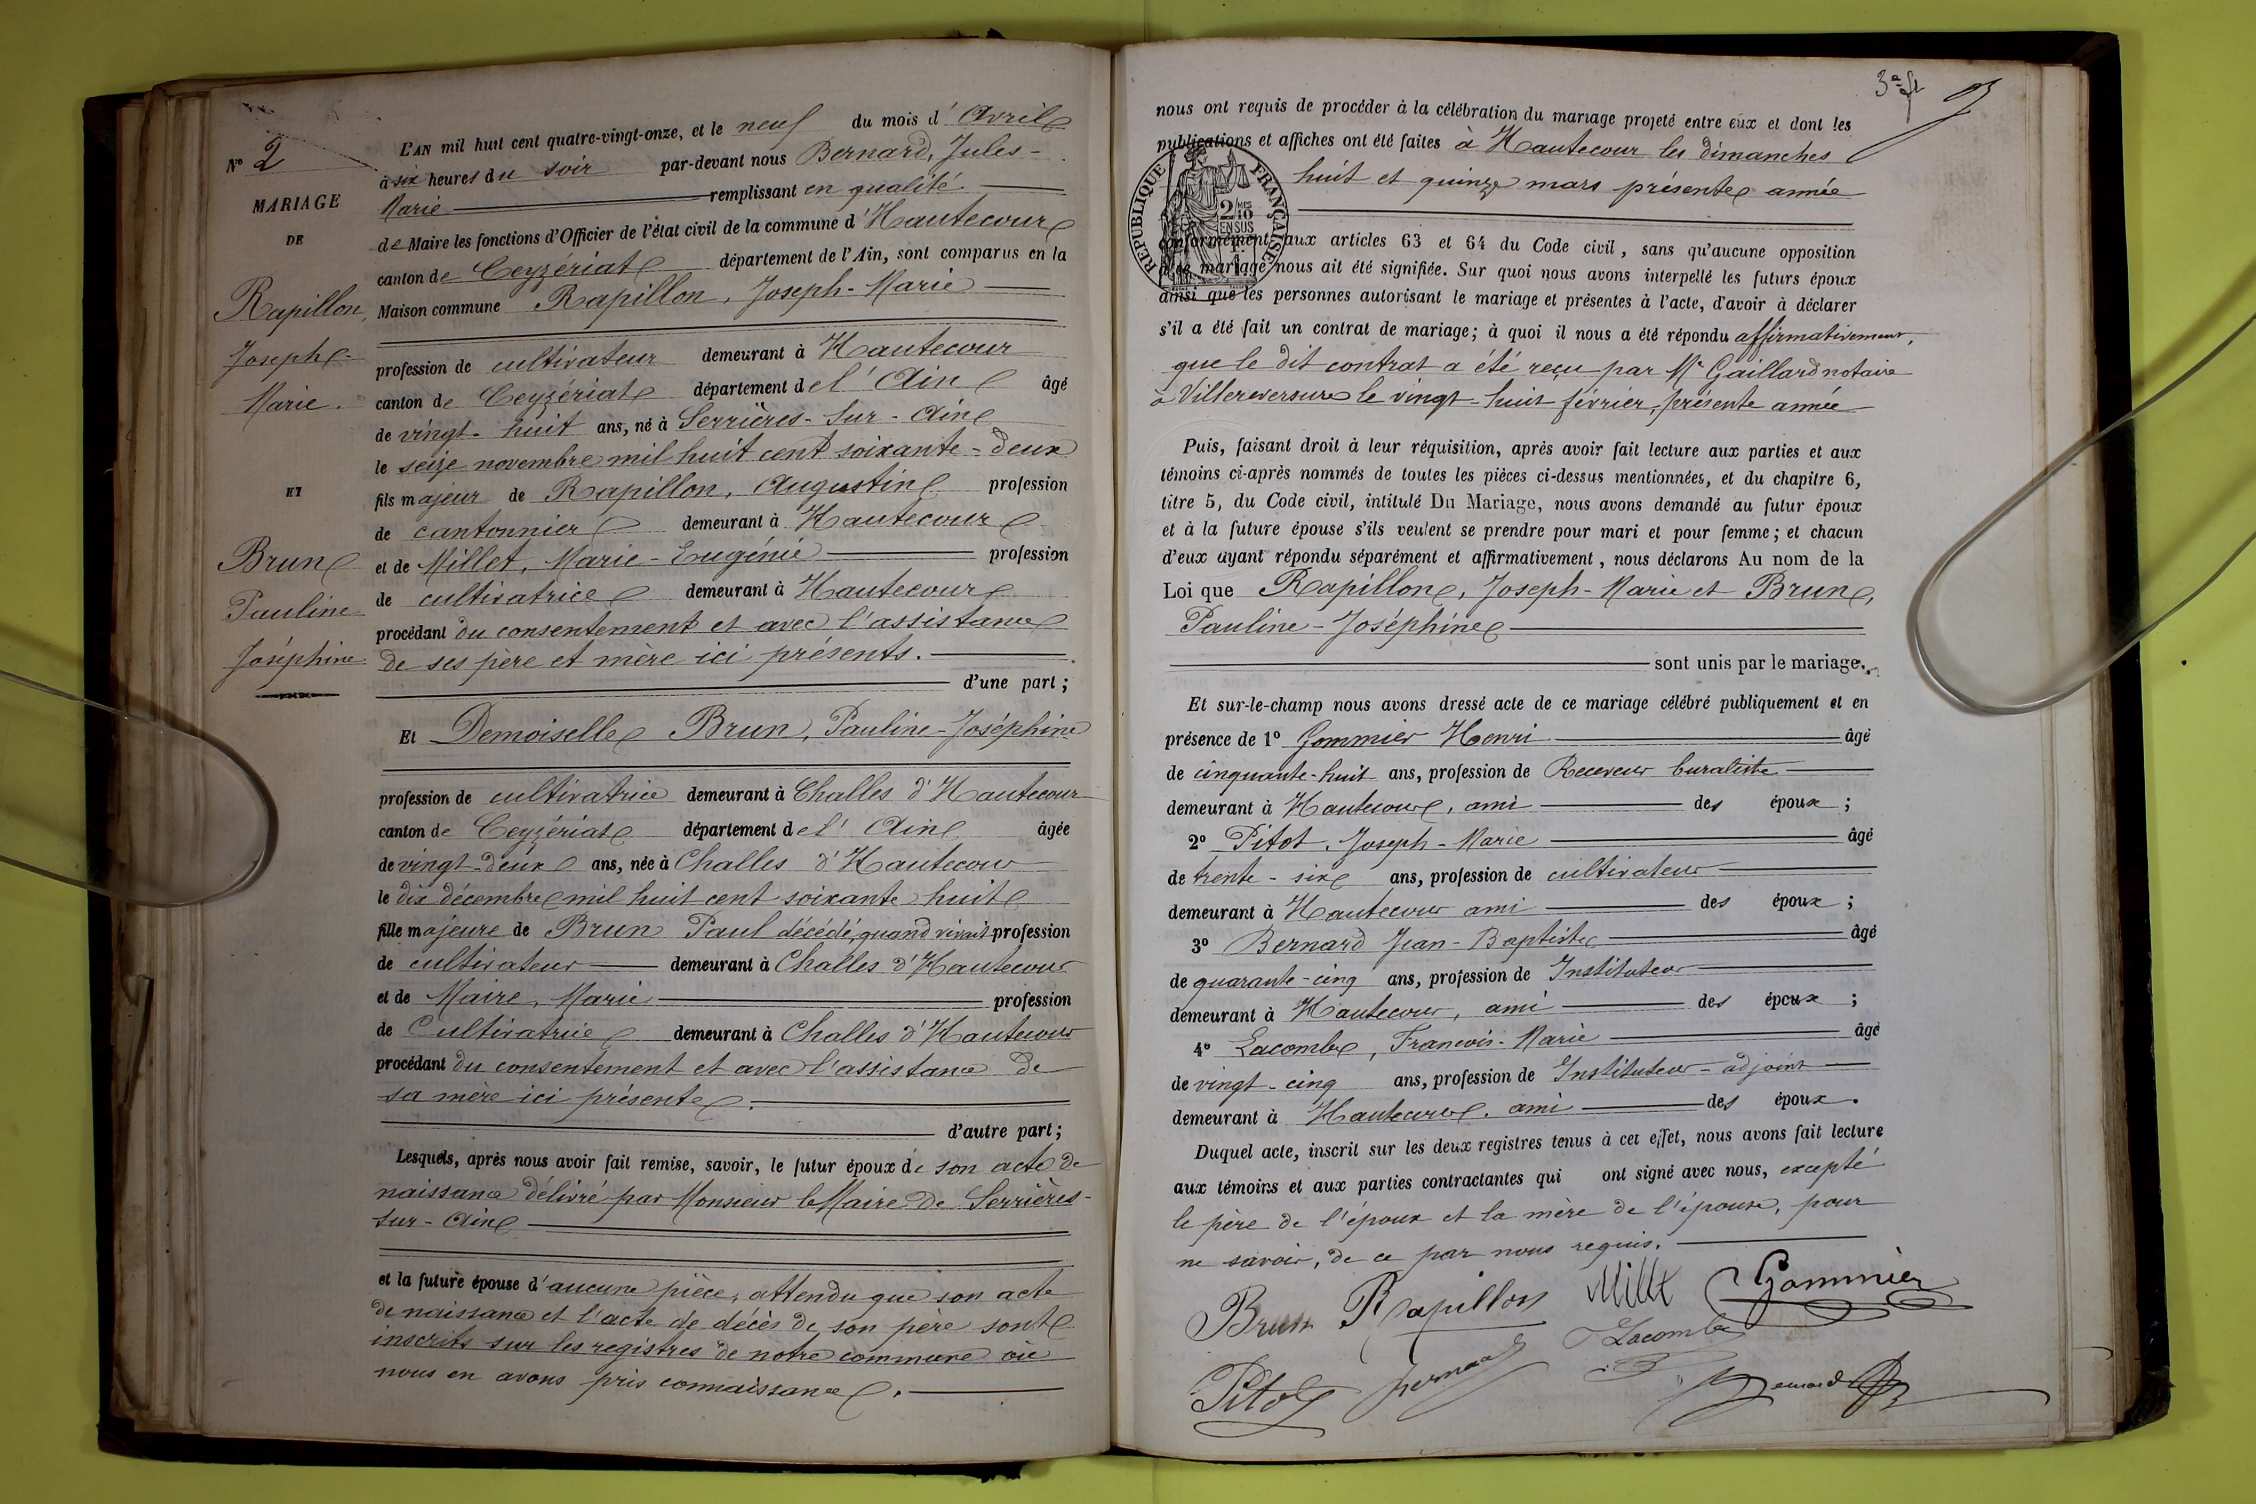 N° 2
MARIAGE
DE
Rapillon,
Joseph-
Marie.
ET
Brun
Pauline
Joséphine
L'AN mil huit cent quatre-vingt-onze, et le neuf du mois d'Avril
à six heures du soir par-devant nous Bernard, Jules-
Marie remplissant en qualité
de Maire les fonctions d'Officier de l'état civil de la commune d'Hautecour
canton de Ceyzériat département de l'Ain, sont comparus en la
Maison commune Rapillon, Joseph-Marie
profession de cultivateur demeurant à Hautecour
canton de Ceyzériat département de l'Ain âgé
de vingt-huit ans, né à Serrières-sur-Ain
le seize novembre mil huit cent soixante-deux
fils majeur de Rapillon, Augustin profession
de cantonnier demeurant à Hautecour
et de Millet, Marie-Eugénie profession
de cultivatrice demeurant à Hautecour
procédant du consentement et avec l'assistance
de ses père et mère ici présents.
d'une part;
Et Demoiselle Brun, Pauline-Joséphine
profession de cultivatrice demeurant à Challes d'Hautecour
canton de Ceyzériat département de l'Ain âgée
de vingt-deux ans, née à Challes d'Hautecour
le dix décembre mil huit cent soixante huit
fille majeure de Brun Paul décédé, quand vivait profession
de cultivateur demeurant à Challes d'Hautecour
et de Maire, Marie profession
de Cultivatrice demeurant à Challes d'Hautecour
procédant du consentement et avec l'assistance de
sa mère ici présente.
d'autre part;
Lesquels, après nous avoir fait remise, savoir, le futur époux de son acte de
naissance délivré par Monsieur le Maire de Serrières-
sur-Ain
et la future épouse d'aucune pièce, attendu que son acte
de naissance et l'acte de décès de son père sont
inscrits sur les registres de notre commune où
nous en avons pris connaissance.
nous ont requis de procéder à la célébration du mariage projeté entre eux et dont les
publications et affiches ont été faites à Hautecour les dimanches
huit et quinze mars présente année
RÉPUBLIQUE FRANÇAISE
2/10 MES
EN SUS
conformément aux articles 63 et 64 du Code civil, sans qu'aucune opposition
à ce mariage nous ait été signifiée. Sur quoi nous avons interpellé les futurs époux
ainsi que les personnes autorisant le mariage et présentes à l'acte, d'avoir à déclarer
s'il a été fait un contrat de mariage; à quoi il nous a été répondu affirmativement,
que le dit contrat a été reçu par Me Gaillard notaire
à Villereversure le vingt-huit février, présente année
Puis, faisant droit à leur réquisition, après avoir fait lecture aux parties et aux
témoins ci-après nommés de toutes les pièces ci-dessus mentionnées, et du chapitre 6,
titre 5, du Code civil, intitulé Du Mariage, nous avons demandé au futur époux
et à la future épouse s'ils veulent se prendre pour mari et pour femme; et chacun
d'eux ayant répondu séparément et affirmativement, nous déclarons Au nom de la
Loi que Rapillon, Joseph-Marie et Brun,
Pauline-Joséphine
sont unis par le mariage.
Et sur-le-champ nous avons dressé acte de ce mariage célébré publiquement et en
présence de 1° Gommier Henri âgé
de cinquante-huit ans, profession de Receveur buraliste
demeurant à Hautecour, ami des époux;
2° Pitot, Joseph-Marie âgé
de trente-six ans, profession de cultivateur
demeurant à Hautecour ami des époux;
3° Bernard Jean-Baptiste âgé
de quarante-cinq ans, profession de Instituteur
demeurant à Hautecour, ami des époux;
4° Lacombe, François-Marie âgé
de vingt-cinq ans, profession de Instituteur-adjoint
demeurant à Hautecour, ami des époux.
Duquel acte, inscrit sur les deux registres tenus à cet effet, nous avons fait lecture
aux témoins et aux parties contractantes qui ont signé avec nous, excepté
le père de l'époux et la mère de l'épouse, pour
ne savoir, de ce par nous requis.
Brun Rapillon Millet Gommier
Lacombe
Pitot Bernard Bernard